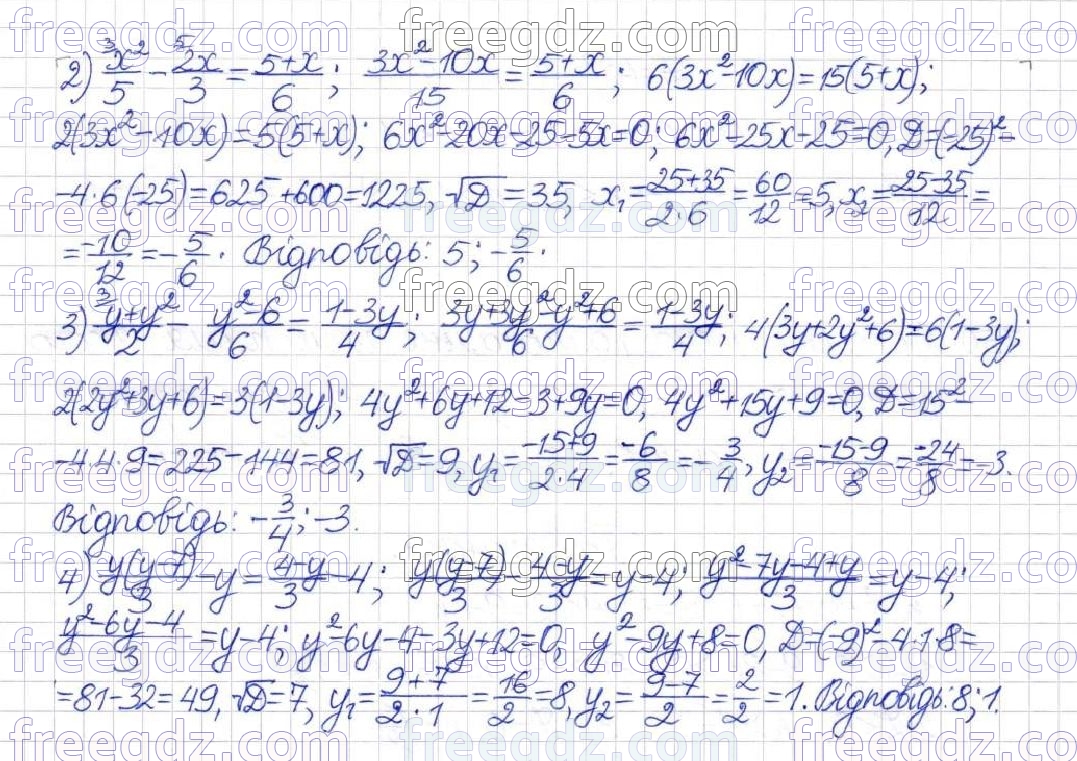 2) ³x²/5 - ⁵2x/3 = 5+x/6; 3x²-10x/15 = 5+x/6; 6(3x²-10x)=15(5+x);
2(3x²-10x)=5(5+x); 6x²-20x-25-5x=0; 6x²-25x-25=0, D=(-25)²-
-4·6(-25)=625+600=1225, √D=35, x₁=25+35/2·6=60/12=5, x₂=25-35/12=
=-10/12=-5/6. Відповідь: 5; -5/6.
3) ³y+y²/2 - y²-6/6 = 1-3y/4; 3y+3y²-y²+6/6 = 1-3y/4; 4(3y+2y²+6)=6(1-3y);
2(2y²+3y+6)=3(1-3y); 4y²+6y+12-3+9y=0, 4y²+15y+9=0, D=15²-
-4·4·9=225-144=81, √D=9, y₁=-15+9/2·4=-6/8=-3/4, y₂=-15-9/8=-24/8=-3.
Відповідь: -3/4; -3.
4) y(y-7)/3 - y = 4-y/3 - 4; y(y-7)/3 - 4-y/3 = y-4; y²-7y-4+y/3 = y-4;
y²-6y-4/3 = y-4; y²-6y-4-3y+12=0, y²-9y+8=0, D=(-9)²-4·1·8=
=81-32=49, √D=7, y₁=9+7/2·1=16/2=8, y₂=9-7/2=2/2=1. Відповідь: 8; 1.
freegdz.com